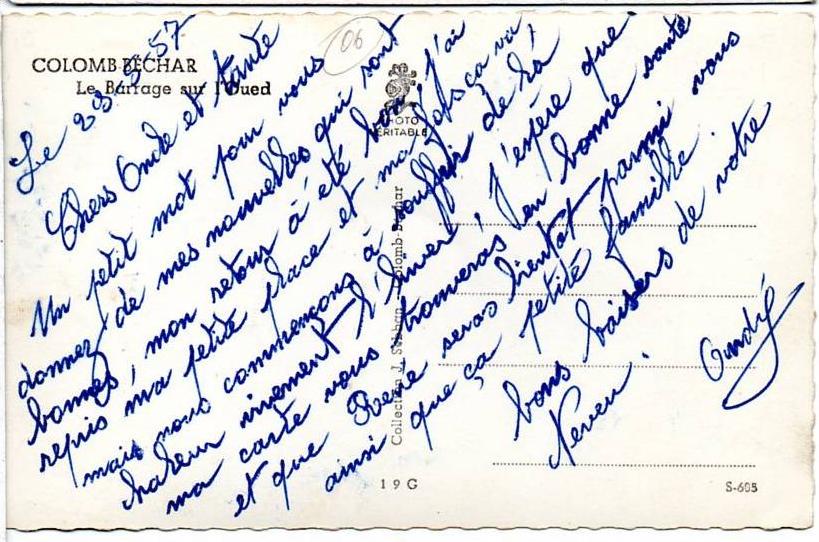 COLOMB-BÉCHAR
Le Barrage sur l'Oued
06
PHOTO
VÉRITABLE
Collection J. Sebban - Colomb-Béchar
19 G
S-605
Le 23.5.57
Chers Oncle et tante
Un petit mot pour vous
donnez de mes nouvelles qui sont
bonnes, mon retour à été bon, j'ai
repris ma petite place et ça va,
mais nous commençons à souffrir de la
chaleur vivement l'hiver, j'espère que
ma carte vous trouveras en bonne santé
et que René seras bientot parmi vous
ainsi que ça petite famille.
bons baisers de votre
Neveu.
André